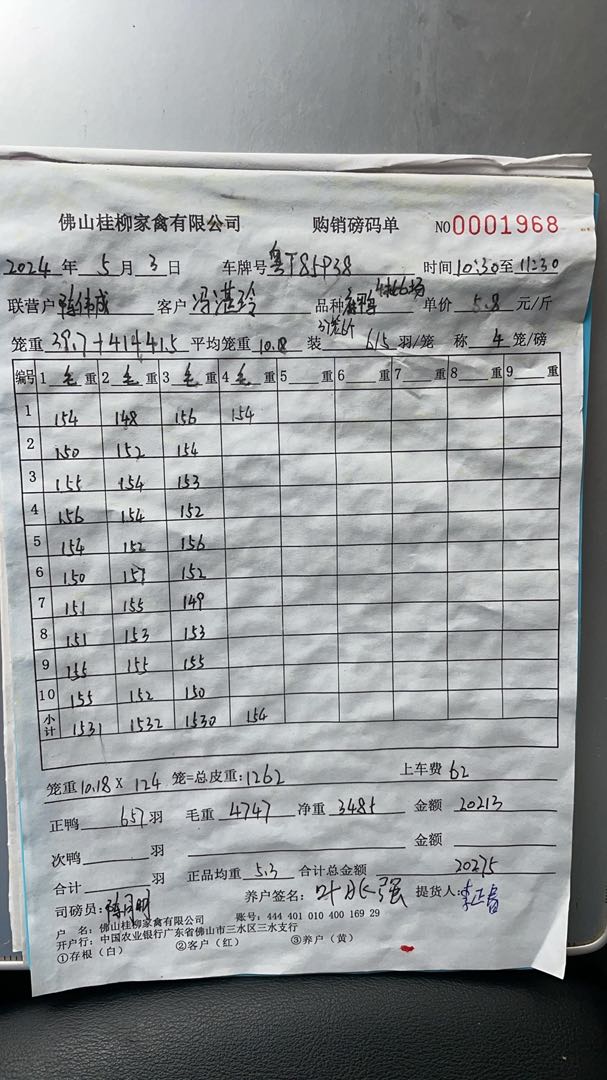 佛山桂柳家禽有限公司 购销磅码单 NO0001968
2024年5月3日 车牌号粤T85P38 时间10:30至11:30
联营户 陈伟成 客户 冯湛玲 品种 单价 5.8 元/斤
笼重 39.7+41+41.5 平均笼重 10.18 装 6/5 羽/笼 称 4 笼/磅
编号 1 毛 重 2 毛 重 3 毛 重 4 毛 重 5 重 6 重 7 重 8 重 9 重
1 154 148 156 154
2 150 152 154
3 155 154 153
4 156 154 152
5 154 152 156
6 150 157 152
7 151 155 149
8 151 153 153
9 155 155 155
10 155 152 150
小计 1531 1532 1530 154
笼重10.18X 124 笼=总皮重:1262 上车费 62
正鸭 657 羽 毛重 4747 净重 3485 金额 20213
次鸭 羽 金额
合计 羽 正品均重 5.3 合计总金额 20275
司磅员: 养户签名: 叶 强 提货人:
户 名:佛山桂柳家禽有限公司 账号:444 401 010 400 169 29
开户行:中国农业银行广东省佛山市三水区三水支行
①存根（白） ②客户（红） ③养户（黄）